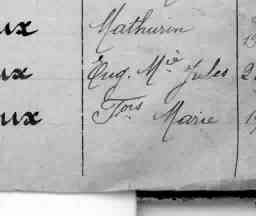 ux Mathurin
ux Eug. Mie Jules 2
ux Fois Marie 1